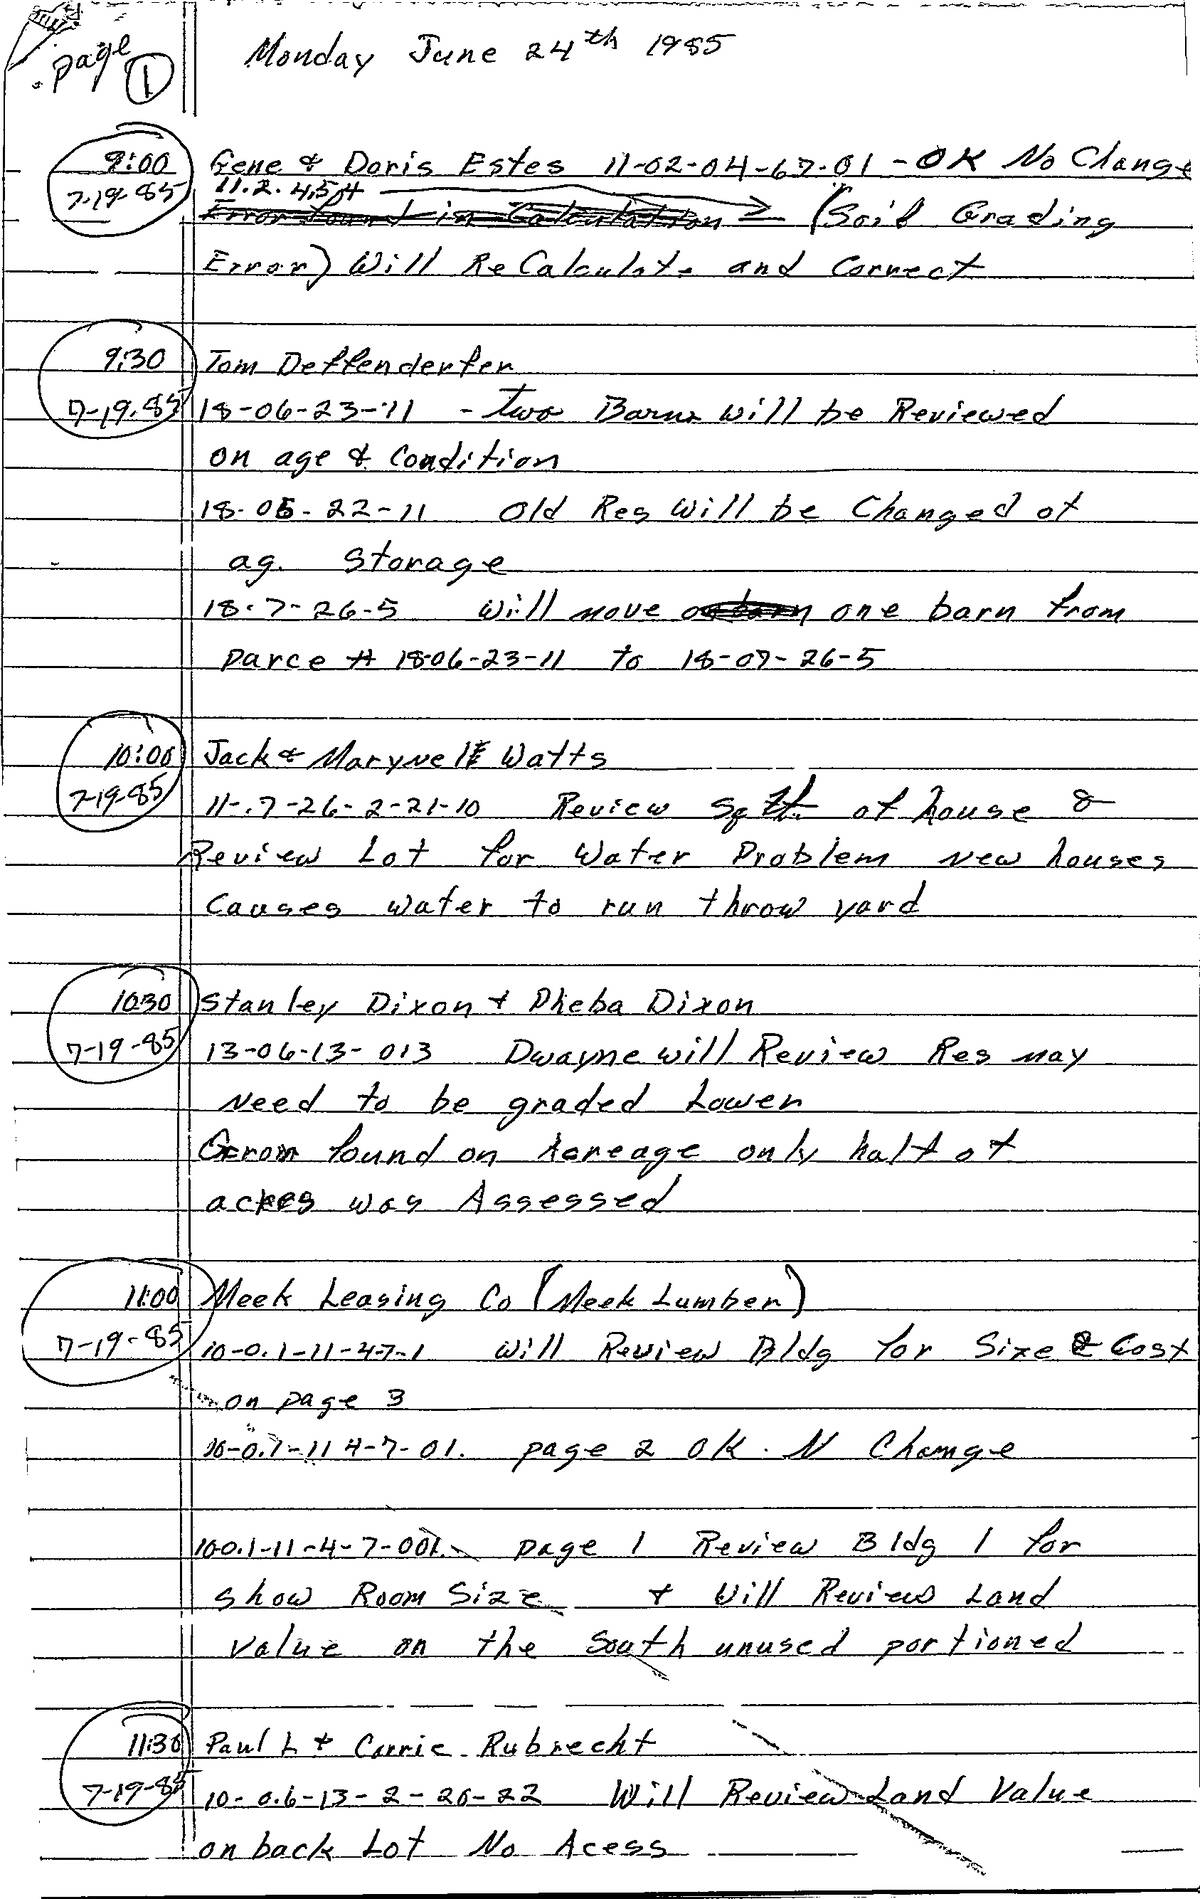 page 1
Monday June 24th 1985
9:00 Gene & Doris Estes 11-02-04-67-01 - OK No Change
7-19-85 11.2.4.5.4
Error found in Calculation (Soil Grading
Error) Will ReCalculate and Correct
9:30 Tom Deffenderfer
7-19-85 18-06-23-11 - two Barns will be Reviewed
on age & Condition
18-05-22-11 Old Res Will be Changed of
ag. Storage
18-7-26-5 Will move one barn from
Parce # 18-06-23-11 to 18-07-26-5
10:00 Jack & Marynell Watts
7-19-85 11-.7-26-2-21-10 Review Sq ft. of house &
Review Lot for Water Problem New houses
Causes water to run throw yard
10:30 Stanley Dixon & Pheba Dixon
7-19-85 13-06-13-013 Dwayne will Review Res may
Need to be graded Lower
found on Acreage only half of
acres was Assessed
11:00 Meek Leasing Co (Meek Lumber)
7-19-85 10-0.1-11-4-7-1 Will Review Bldg for Size & Cost
on page 3
10-0.1-11 4-7-01. page 2 OK. N Change
10-0.1-11-4-7-001. page 1 Review Bldg 1 for
Show Room Size & Will Review Land
Value on the South unused portioned
11:30 Paul L & Carrie Rubrecht
7-19-85 10-0.6-13-2-20-22 Will Review Land Value
on back Lot No Acess